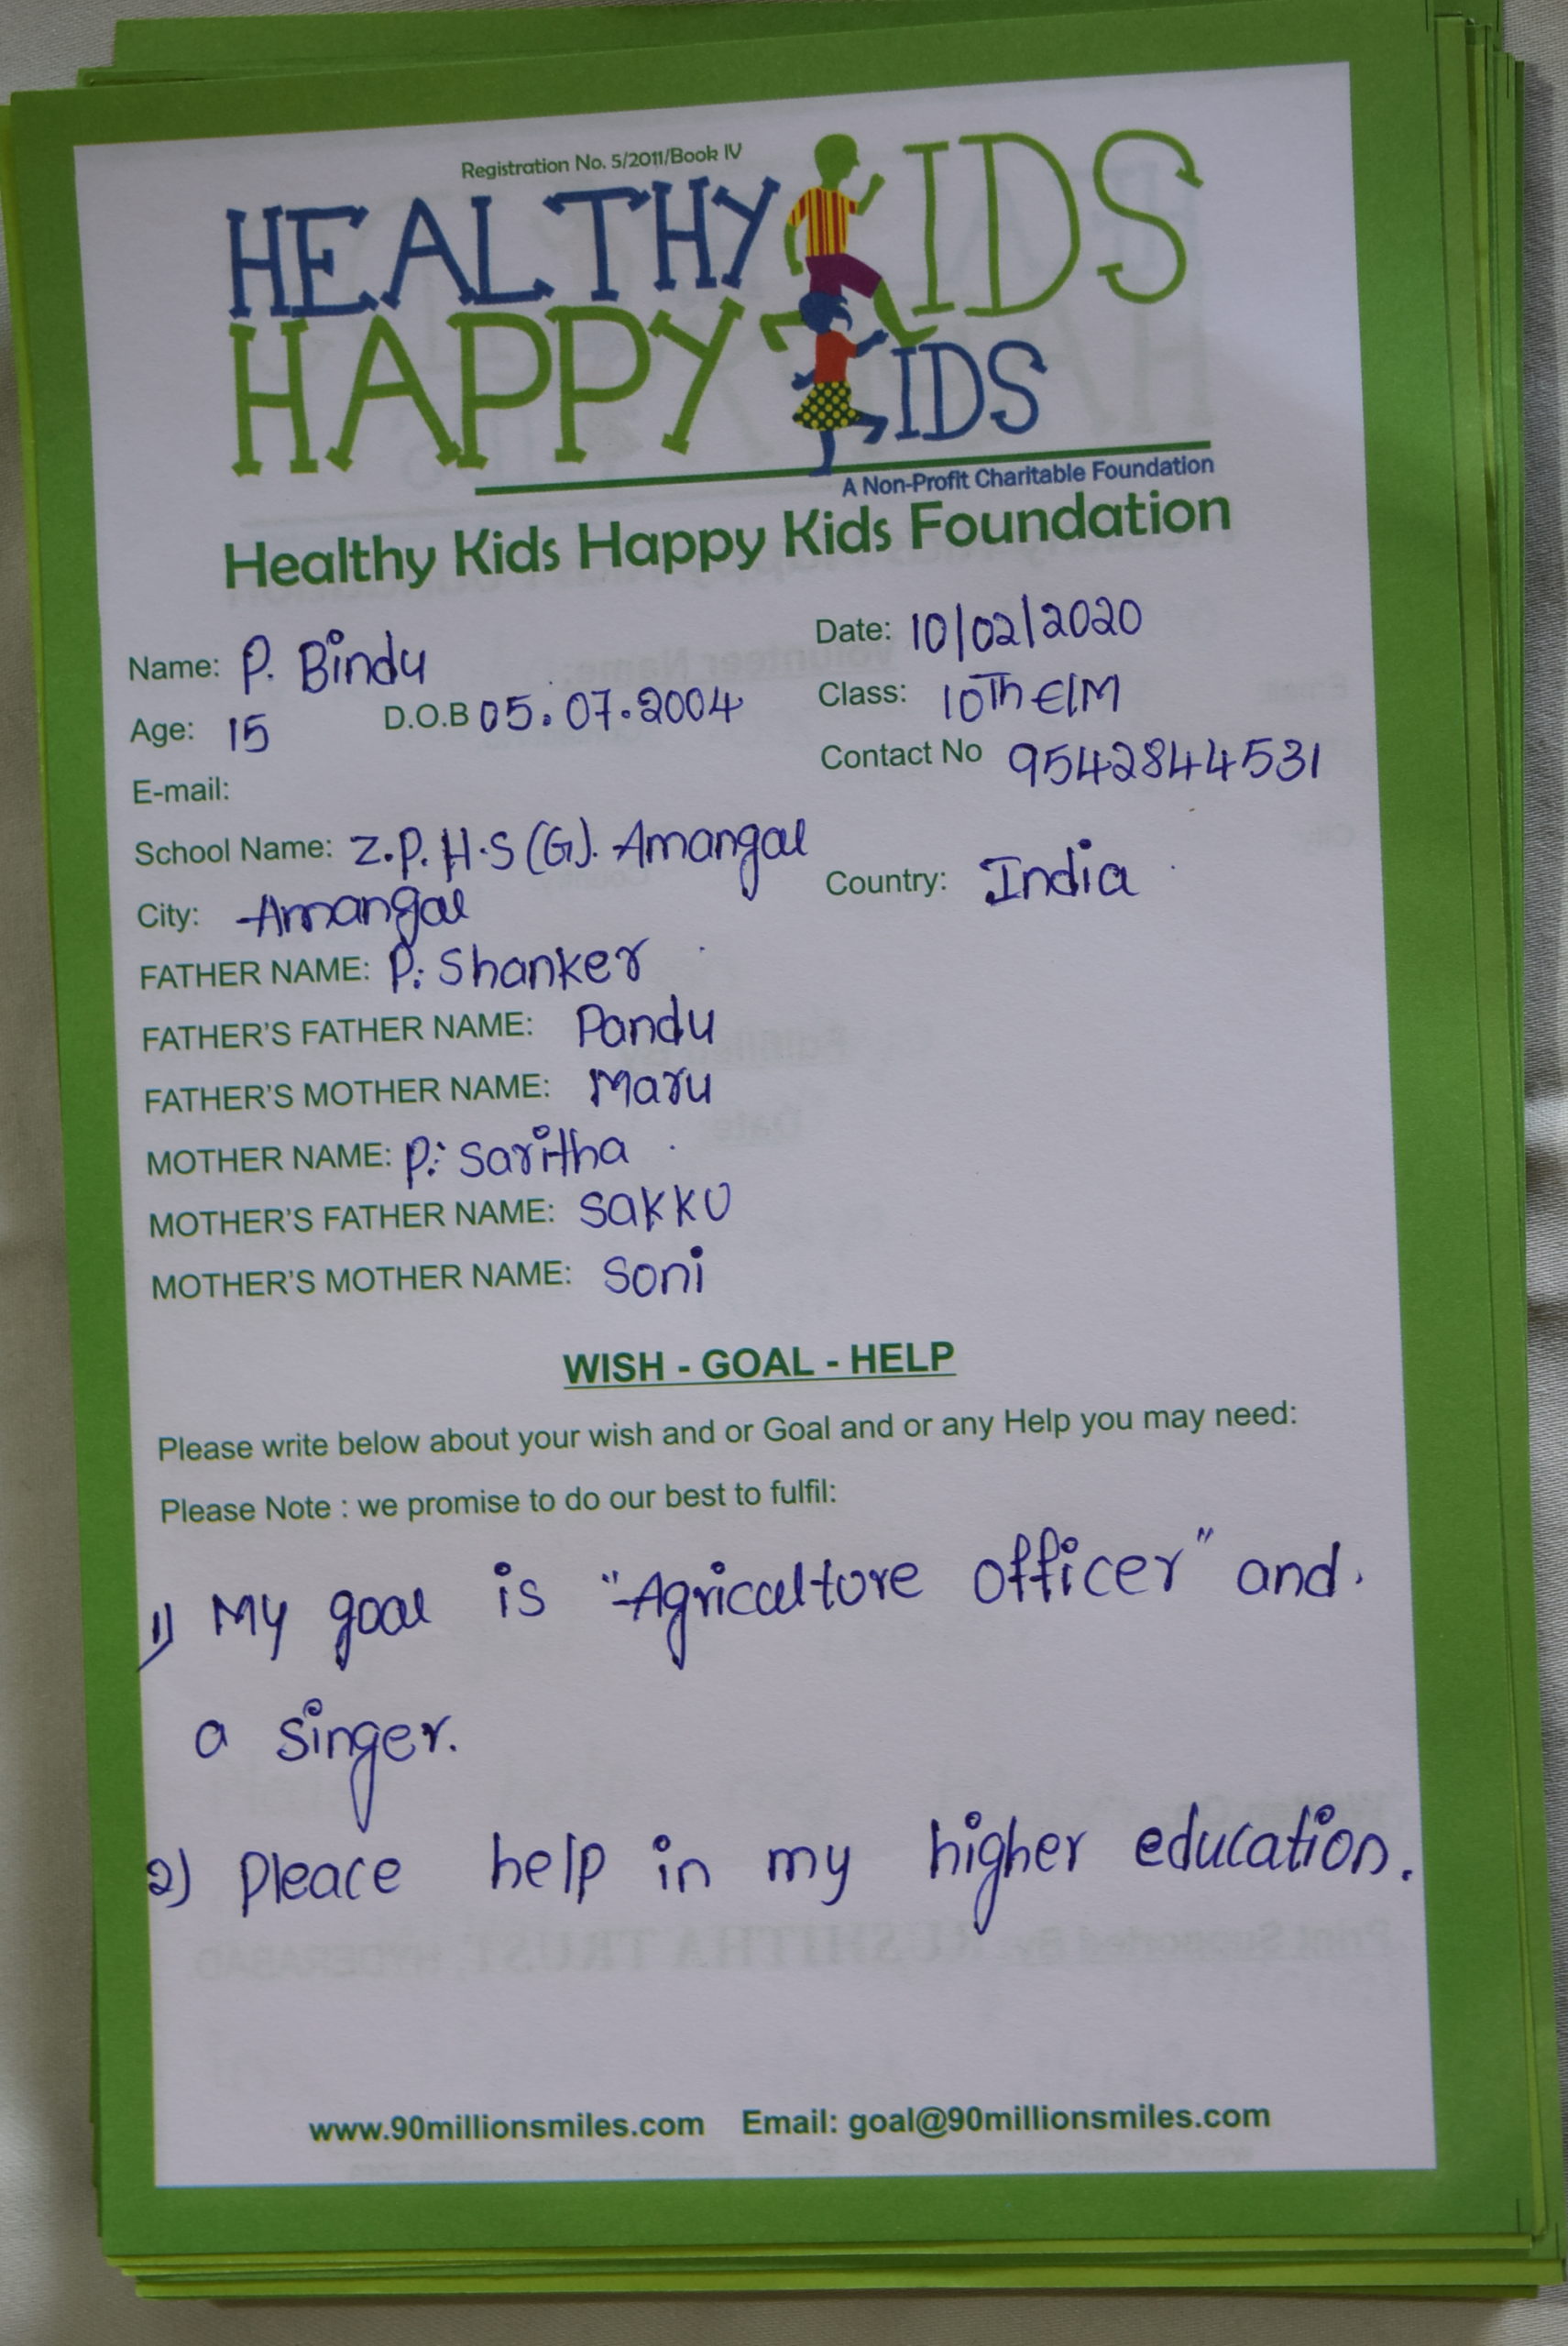 Registration No. 5/2011/Book IV
HEALTHY KIDS
HAPPY KIDS
A Non-Profit Charitable Foundation
Healthy Kids Happy Kids Foundation
Name: P. Bindu
Date: 10/02/2020
Age: 15 D.O.B 05.07.2004
Class: 10Th E/M
E-mail:
Contact No 9542844531
School Name: Z.P.H.S (G). Amangal
City: Amangal
Country: India
FATHER NAME: P. Shanker
FATHER'S FATHER NAME: Pandu
FATHER'S MOTHER NAME: Maru
MOTHER NAME: P. Saritha
MOTHER'S FATHER NAME: Sakku
MOTHER'S MOTHER NAME: Soni
WISH - GOAL - HELP
Please write below about your wish and or Goal and or any Help you may need:
Please Note : we promise to do our best to fulfil:
1) My goal is "Agriculture officer" and.
a singer.
2) Pleace help in my higher education.
www.90millionsmiles.com Email: goal@90millionsmiles.com